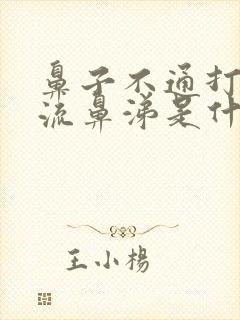 鼻子不通打
流鼻涕是什
王小楊